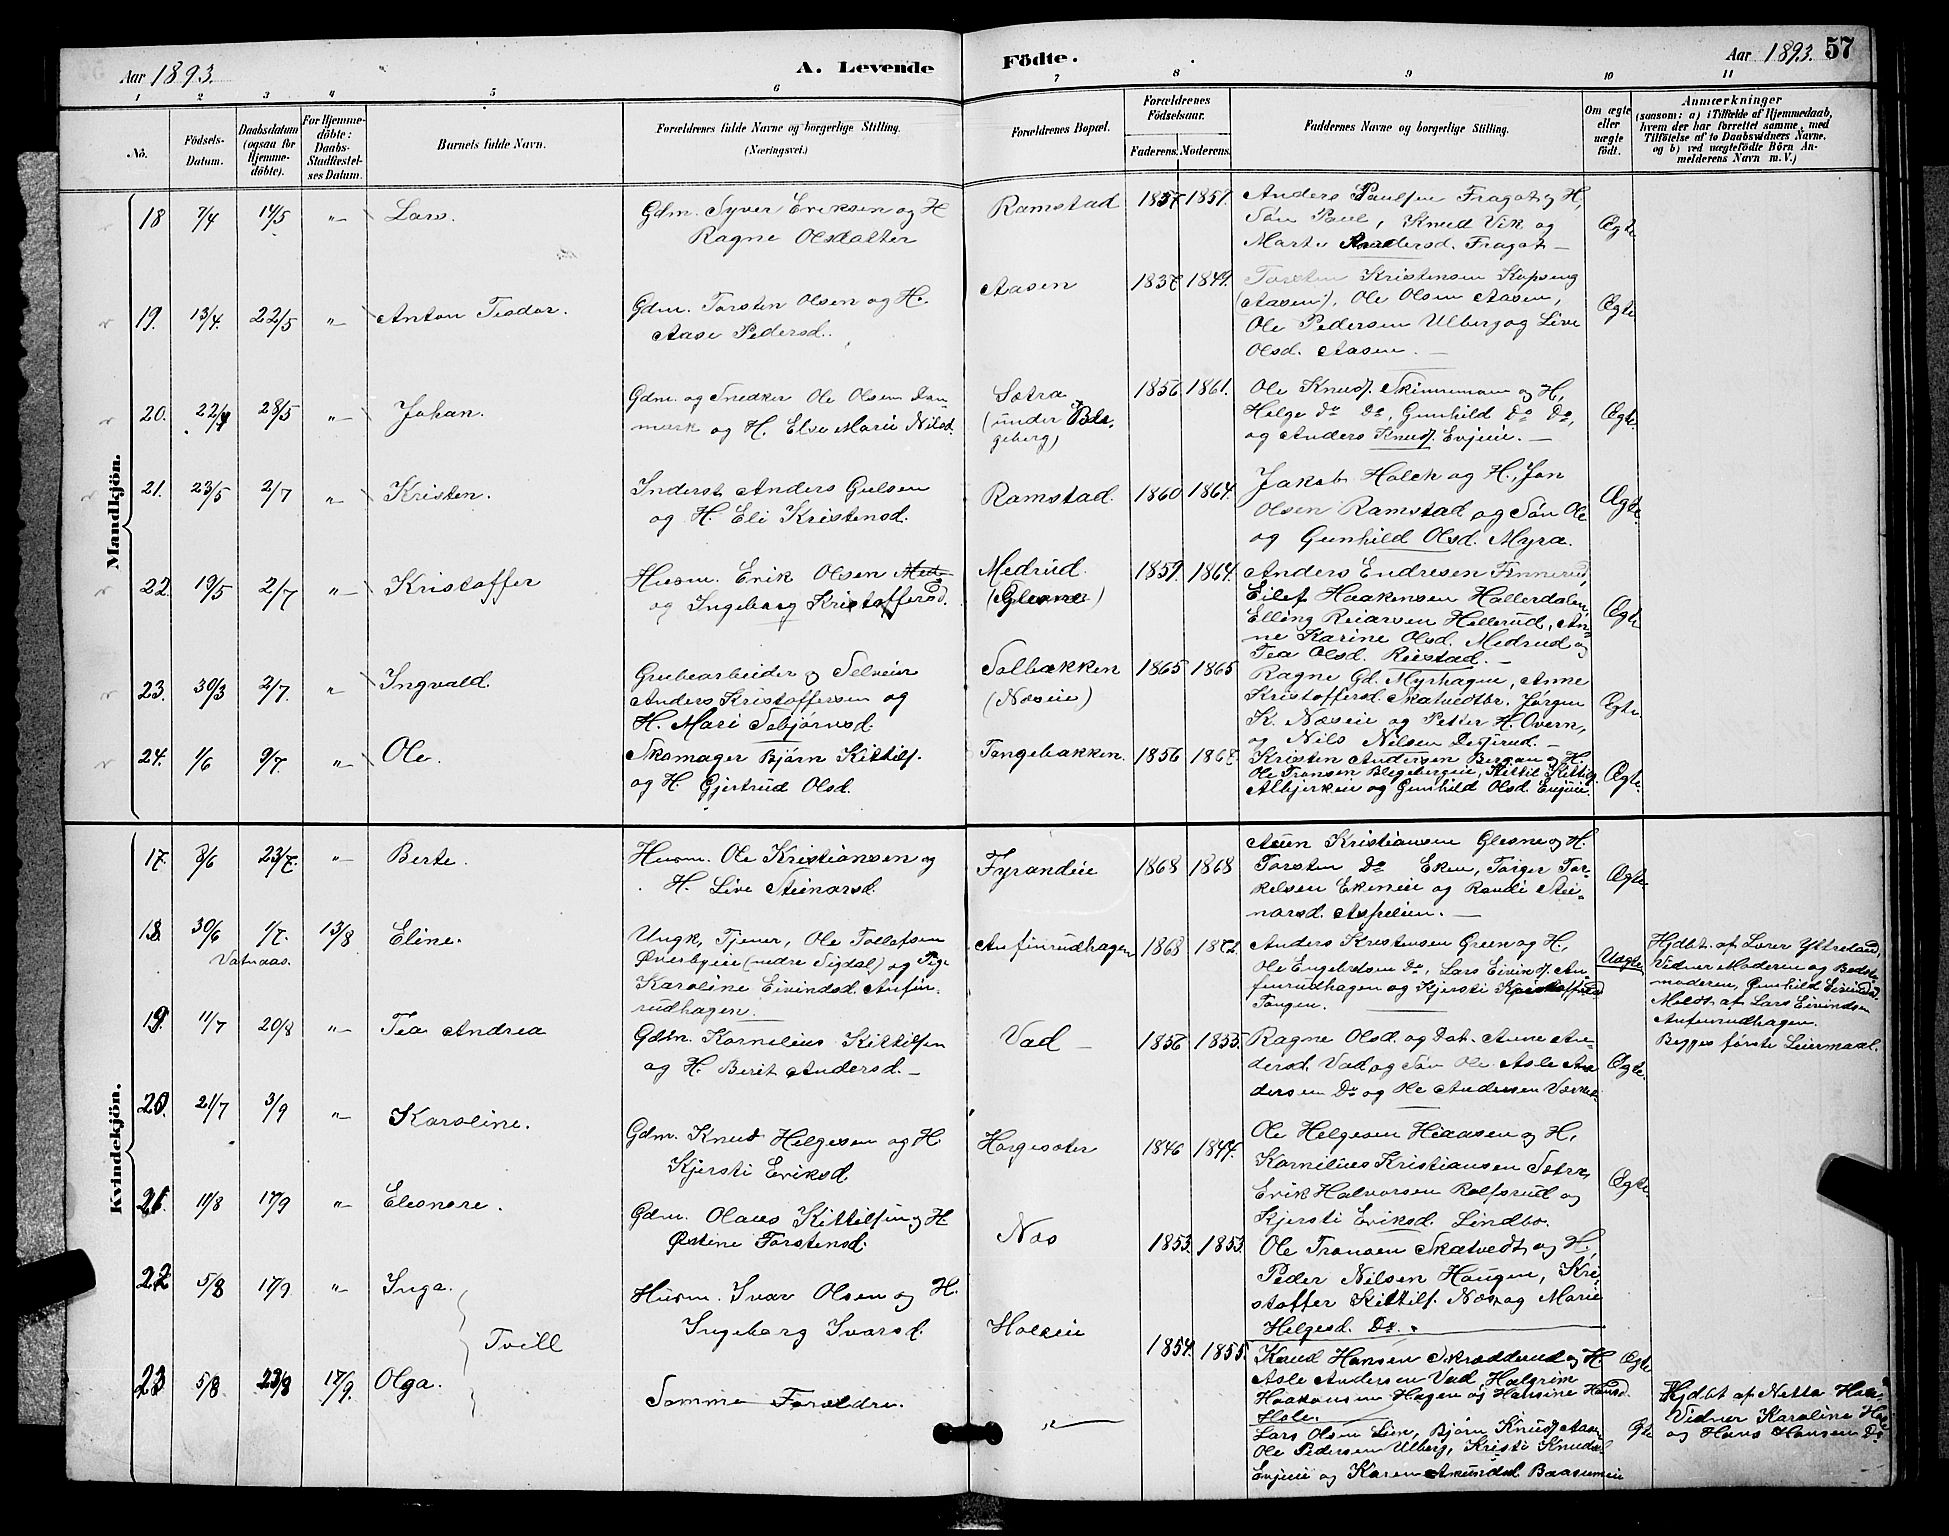 Aar 1893. A. Levende Födte. Aar 1893. 57
1 2 3 4 5 6 7 8 9 10 11
No. Födsels-Datum. Daabsdatum (ogsaa for Hjemmedöbte). For Hjemmedöbte: Daabs-Stadfæstelses Datum. Barnets fulde Navn. Forældrenes fulde Navne og borgerlige Stilling. (Næringsvei.) Forældrenes Bopæl. Forældrenes Födselsaar. Faderens. Moderens. Faddernes Navne og borgerlige Stilling. Om ægte eller uægte födt. Anmærkninger (saasom: a) i Tilfælde af Hjemmedaab, hvem der har forrettet samme, med Tilföielse af to Daabsvidners Navne, og b) ved uægtefödte Börn Anmelderens Navn m. V.)
Mandkjön.
18 7/4 14/5 "- Lars. Gdm. Syver Eriksen og H
Ragne Olsdatter
Ramstad 1857 1851.
Anders Paulsen Fragot og H,
Søn Paul, Knud Vik og
Marte Andersd. Fragot —
Ægte
19. 13/4. 22/5 "- Anton Teodor. Gdm. Torsten Olsen og H.
Aase Pedersd.
Aasen 1837 1849.
Torsten Kristensen Kopseng
(Aasen), Ole Olsen Aasen,
Ole Pedersen Ulberg og Live
Olsd. Aasen. —
Ægte
20. 22/4 28/5 "- Johan. Gdm. og Snedker Ole Olsen Dan-
mark og H. Else Marie Nilsd.
Sætra
(under Ble-
geberg)
1856 1861.
Ole Knuds. Skinnemoen og H,
Helge Do Do, Gunhild Do Do,
og Anders Knuds. Enjeie. —
Ægte.
21. 23/5 2/7 " Kristen. Inderst Anders Gulsen
og H. Eli Kristensd.
Ramstad. 1860 1864.
Jakob Holck og H, Jon
Olsen Ramstad og Søn Ole
og Gunhild Olsd. Myra.
Ægte.
22. 19/5 2/7 "- Kristoffer Husm. Erik Olsen
og Ingeborg Kristoffersd.
Medrud.
(Glesne)
1859. 1864.
Anders Endresen Finnerud,
Eilef Haakensen Hallerdalen,
Elling Reiersen Hellerud, An-
ne Karine Olsd. Medrud og
Tea Olsd. Reistad. —
Ægte
23. 30/3 2/7. " Ingvald. Grubearbeider og Selveier
Anders Kristoffersen og
H. Mari Sebjørnsd.
Solbakken
(Næseie)
1865 1865
Ragne Gd. Myrhagen, Anne
Kristoffersd. Skatvedtbr. Jørgen
K. Næseie og Petter H. Overn,
og Nils Nilsen Desserud. —
Ægte.
24. 1/6 9/7. " Ole. Skomager Bjørn Kittils.
og H. Gjertrud Olsd.
Tangebakken. 1856 1868.
Kristen Andersen Bergan og H.
Ole Tronsen Blegebergeie, Kittil Kittils.
Albjerkeie og Gunhild Olsd. Enjeie.
Ægte.
Kvindekjön.
17. 8/6 23/7. "- Berte. Husm. Ole Kristiansen og
H. Live Steinarsd.
Fyrandeie 1868 1868
Aven Kristiansen Glesne og H.
Torsten Do Eken, Torger Tor-
kelsen Ekeneie og Randi Stei-
narsd. Aspelien. —
Ægte
18. 30/6 1/7. 13/8 Eline.
Vatnaas.
Ungk, Tjener, Ole Tollefsen
Øverbyeie (nedre Sigdal) og Pige
Karoline Eivindsd. Anfin-
rudhagen.
Anfinrudhagen 1868 1872.
Anders Kristensen Green og H,
Ole Engebretsen Do, Lars Eivinds. An-
finrudhagen og Kjersti Kristoffersd
Tangen. —
Uægte
Hjdbt. af Lærer Yttreland,
Vidner Moderen og Bedste-
moderen, Gunhild Eivindsd.
Meldt af Lars Eivindsen
Anfinrudhagen.
Begges første Leiermaal.
19. 11/7 20/8 "- Tea Andrea Gdm. Kornelius Kittilsen
og H. Berit Andersd. —
Vad — 1856 1855.
Ragne Olsd. og Dat. Anne An-
dersd. Vad og Søn Ole Asle An-
dersen Do og Ole Andersen
Ægte.
20. 21/7 3/9 "- Karoline. Gdm. Knut Helgesen og H
Kjersti Eriksd
Horgeseter 1846 1847.
Ole Helgesen Hiaasen og H,
Kornelius Kristiansen Sætra,
Erik Halvorsen Rolfsrud og
Kjersti Eriksd. Lindbo.
Ægte.
21. 11/8 17/9 "- Eleonore. Gdm. Olaus Kittilsen og H
Østine Torstensd.
Næs 1853. 1853.
Ole Tronsen Skatvedt og H,
Peder Nilsen Haugen, Kri-
stoffer Kittils. Næs og Marie
Helgesd. Do.
22 5/8 17/9 "- Inga. Tvill Husm. Ivar Olsen og H.
Ingeborg Ivarsd.
Holeeie 1854. 1855.
Knud Hansen Skrædderud og H.
Asle Andersen Vad, Halgrim
Haakonsen Hagen og Hansine Hansd
Hole.
Ægte
23 5/8 23/8 17/9. Olga. Samme Forældre. "—
Lars Olsen Lien, Bjørn Knuds. Aasen
Ole Pedersen Ulberg, Kristi Knudsd.
Enjeie og Karen Amundsd. Baasumeie
Ægte
Hjdbt af Netta
Vidner Karoline
og Hans Hansen Do